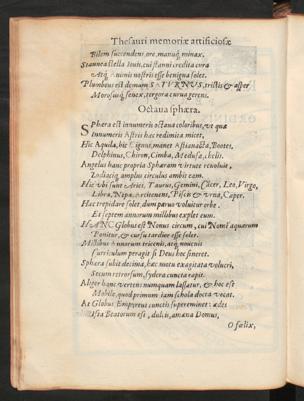 Thesauri memoriæ artificiosæ
Bilem succendens, ore, manuq́; minax.
Stannea stella Iouis, cui stanni credita cura
Atq́; hominis nostris esse benigna solet.
Plumbeus est demum SATVRNVS, tristis & asper
Morosusq́; senex, tergora curua gerens.
Octaua sphæra.
Sphæra est innumeris octaua coloribus, ut quæ
Innumeris Astris hæc redimita micet.
Hic Aquila, hic Cignus, manet Bootes,
Delphinus, Chiron, Cimba, Medusa, chelis.
Angelus hanc propria Sphæram uirtute reuoluit,
Zodiacus amplus circulus ambit eam.
Hic ubi sunt Aries, Taurus, Gemini, Cãcer, Leo, Virgo,
Libra, Nepa, arcitenens, Piscis & urna, Caper.
Hæc trepidare solet, dum paruo voluitur orbe,
Ex septem annorum millibus explet eum.
HANC Globus est Nonus circum, cui Nomẽ aquarum
Ponitur, & cursu tardior esse solet.
Millibus Annorum tricenis, atq́; nouenis
Curriculum peragit si Deus hoc sineret.
Sphæra subit decima, hæc motu exagitata volucri,
Secum retrorsum, sydera cuncta rapit.
Aliger hanc vertens numquam lassatur, & hoc est
Mobile, quod primum iam schola docta vocat.
At Globus Empyreus cunctis supereminet: ædes
Ista Beatorum est, dulcis, amæna Domus,
O fœlix,